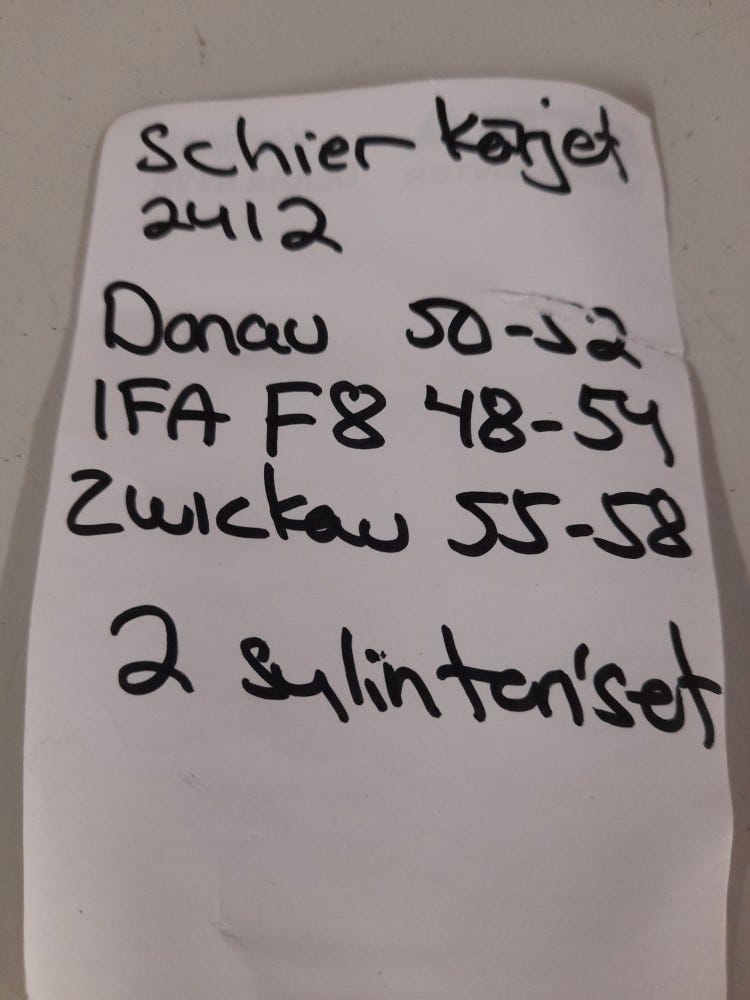 Schier Korjet
2412
Donau 50-52
IFA F8 48-54
Zwickau 55-58
2 sylinteri'set